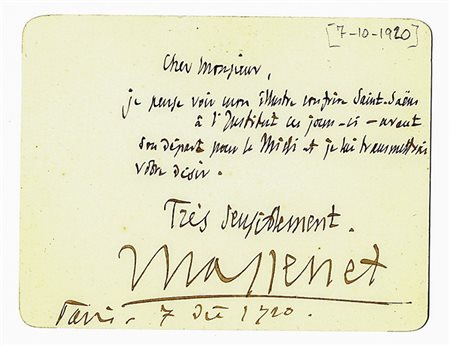 [7-10-1920]
Cher Monsieur,
je pense voir mon illustre confrère Saint-Saëns
à l'Institut ces jours-ci - avant
son départ pour le Midi et je lui transmettrai
votre désir.
Très sensiblement.
Massenet
Paris. 7 1920.